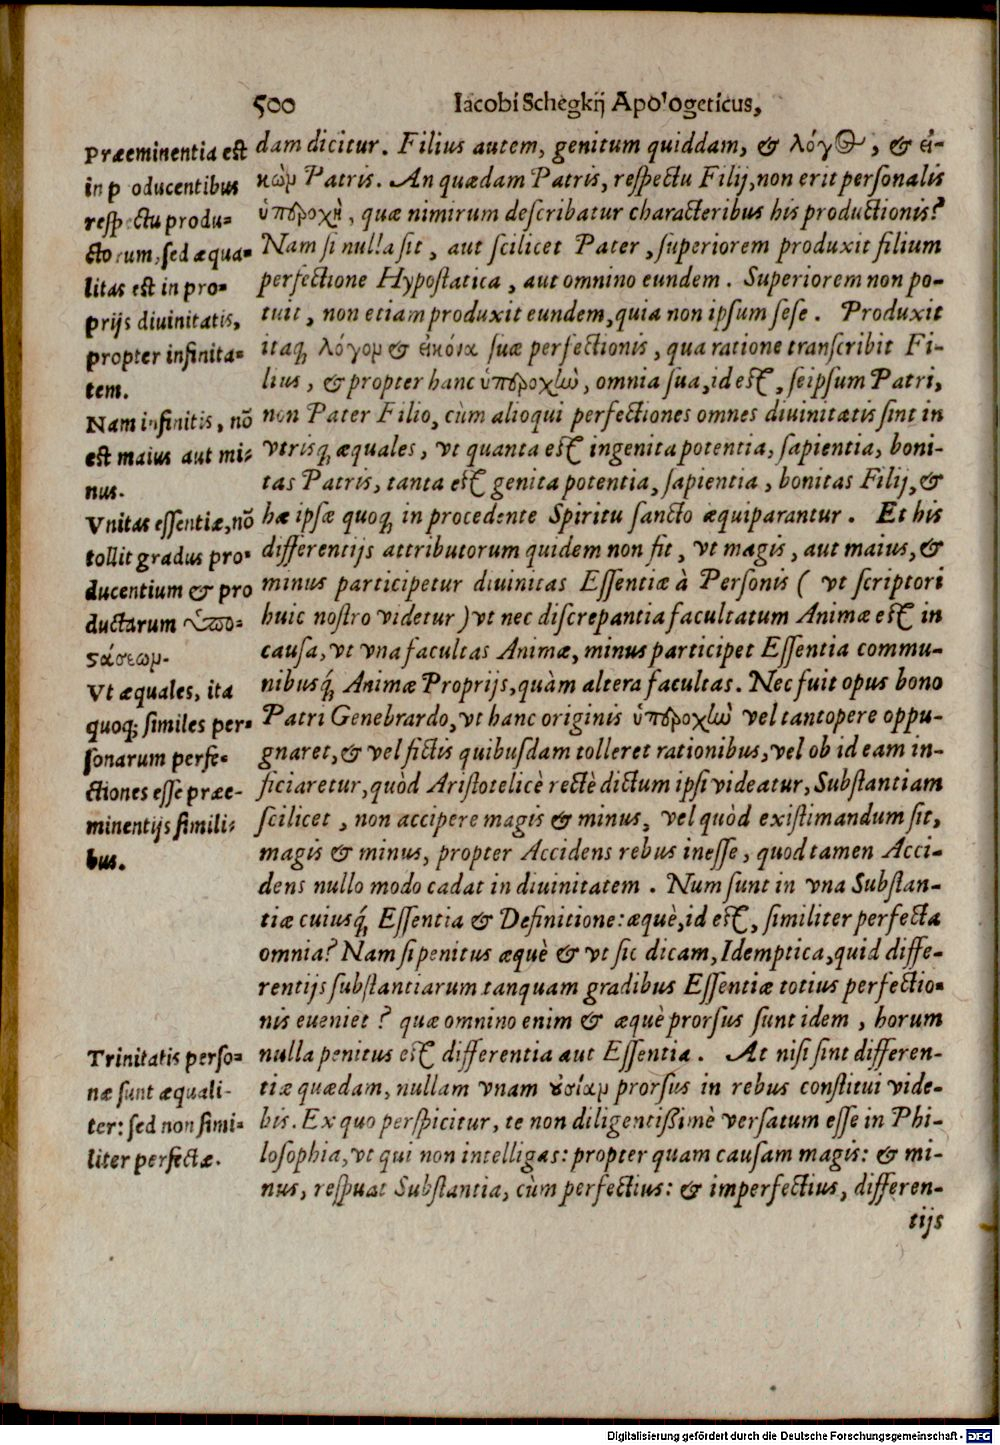 500 Iacobi Schegkij Apologeticus,
dam dicitur. Filius autem, genitum quiddam, & λόγος, & εἰ-
κὼν Patris. An quædam Patris, respectu Filij, non erit personalis
ὑπεροχὴ, quæ nimirum describatur characteribus his productionis?
Nam si nulla sit, aut scilicet Pater, superiorem produxit filium
perfectione Hypostatica, aut omnino eundem. Superiorem non po-
tuit, non etiam produxit eundem, quia non ipsum sese. Produxit
itaq; λόγον & εἰκόνα suæ perfectionis, qua ratione transcribit Fi-
lius, & propter hanc ὑπεροχὼ, omnia sua, id est, seipsum Patri,
non Pater Filio, cùm alioqui perfectiones omnes diuinitatis sint in
vtrisq; æquales, vt quanta est ingenita potentia, sapientia, boni-
tas Patris, tanta est genita potentia, sapientia, bonitas Filij, &
hæ ipsæ quoq; in procedente Spiritu sancto æquiparantur. Et his
differentijs attributorum quidem non fit, vt magis, aut maius, &
minus participetur diuinitas Essentiæ à Personis ( vt scriptori
huic nostro videtur ) vt nec discrepantia facultatum Animæ est in
causa, vt vna facultas Animæ, minus participet Essentia commu-
nibusq́; Animæ Proprijs, quàm altera facultas. Nec fuit opus bono
Patri Genebrardo, vt hanc originis ὑπεροχὼ vel tantopere oppu-
gnaret, & vel fictis quibusdam tolleret rationibus, vel ob id eam in-
ficiaretur, quòd Aristotelicè rectè dictum ipsi videatur, Substantiam
scilicet, non accipere magis & minus, vel quòd existimandum sit,
magis & minus, propter Accidens rebus inesse, quod tamen Acci-
dens nullo modo cadat in diuinitatem. Num sunt in vna Substan-
tiæ cuiusq́; Essentia & Definitione: æquè, id est, similiter perfecta
omnia? Nam si penitus æquè & vt sic dicam, Idemptica, quid diffe-
rentijs substantiarum tanquam gradibus Essentiæ totius perfectio-
nis eueniet? quæ omnino enim & æquè prorsus sunt idem, horum
nulla penitus est differentia aut Essentia. At nisi sint differen-
tiæ quædam, nullam vnam ȣσίαν prorsus in rebus constitui vide-
bis. Ex quo perspicitur, te non diligentißimè versatum esse in Phi-
losophia, vt qui non intelligas: propter quam causam magis: & mi-
nus, respuat Substantia, cùm perfectius: & imperfectius, differen-
tijs
Præeminentia est
in producentibus
respectu produ-
ctorum, sed æqua-
litas est in pro-
prijs diuinitatis,
propter infinita-
tem.
Nam infinitis, nō
est maius aut mi-
nus.
Vnitas essentiæ, nō
tollit gradus pro-
ducentium & pro
ductarum ὑπο-
στάσεων.
Vt æquales, ita
quoq; similes per-
sonarum perfe-
ctiones esse præe-
minentijs simili-
bus.
Trinitatis perso-
næ sunt æquali-
ter: sed non simi-
liter perfectæ.
Digitalisierung gefördert durch die Deutsche Forschungsgemeinschaft - DFG